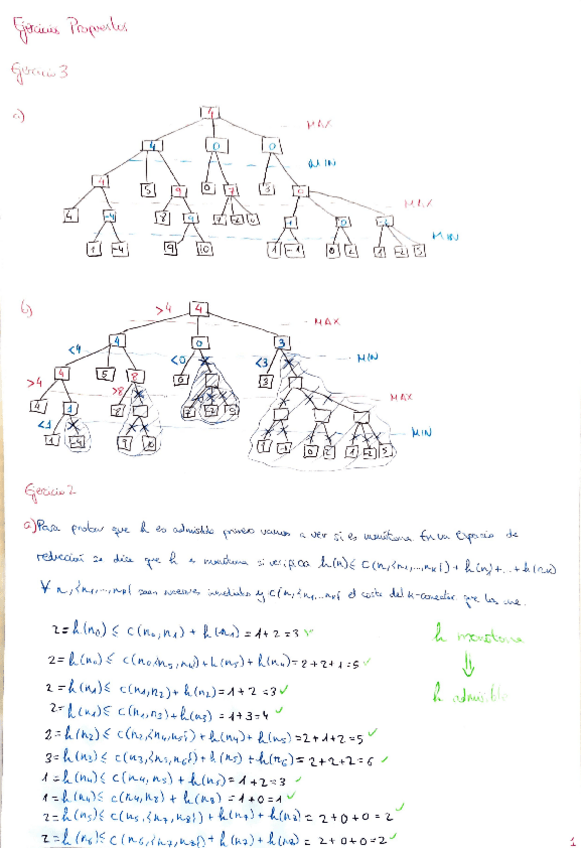 Ejercicios Propuestos
Ejercicio 3
a)
4
MAX
4 0 0
MIN
4 5 9 0 7 3 0
MAX
4 -4 8 9 1 0
MIN
1 -4 9 10 1 -1 0 2 1 -2 5
b)
>4 4
MAX
4 0 3
<4 <0 <3 MIN
>4 4 5 8 0 3
>8 MAX
4 1 8
<1 MIN
1 -4 9
Ejercicio 2
a) Para probar que h es admisible primero vamos a ver si es monótona. En un espacio de
reducción se dice que h es monótona si verifica h(n) ≤ c(n,{n1,...,nk}) + h(n1)+...+h(nk)
∀ n, {n1,...,nk} sean nodos y c(n,{n1,...,nk}) el coste del k-conector que los une.
2=h(n0) ≤ c(n0,n1) + h(n1) = 1+2=3 ✓
2=h(n0) ≤ c(n0,{n5,n4})+h(n5)+h(n4)=2+2+1=5 ✓
2=h(n1) ≤ c(n1,n2)+h(n2)=1+2=3 ✓
2=h(n1) ≤ c(n1,n3)+h(n3)=1+3=4 ✓
2=h(n2) ≤ c(n2,{n4,n5})+h(n4)+h(n5)=2+1+2=5 ✓
3=h(n3) ≤ c(n3,{n5,n6})+h(n5)+h(n6)=2+2+2=6 ✓
1=h(n4) ≤ c(n4,n5)+h(n5)=1+2=3 ✓
1=h(n4) ≤ c(n4,n8)+h(n8)=1+0=1 ✓
2=h(n5) ≤ c(n5,{n7,n8})+h(n7)+h(n8)=2+0+0=2 ✓
2=h(n6) ≤ c(n6,{n7,n8})+h(n7)+h(n8)=2+0+0=2 ✓
h monótona
⇓
h admisible
1